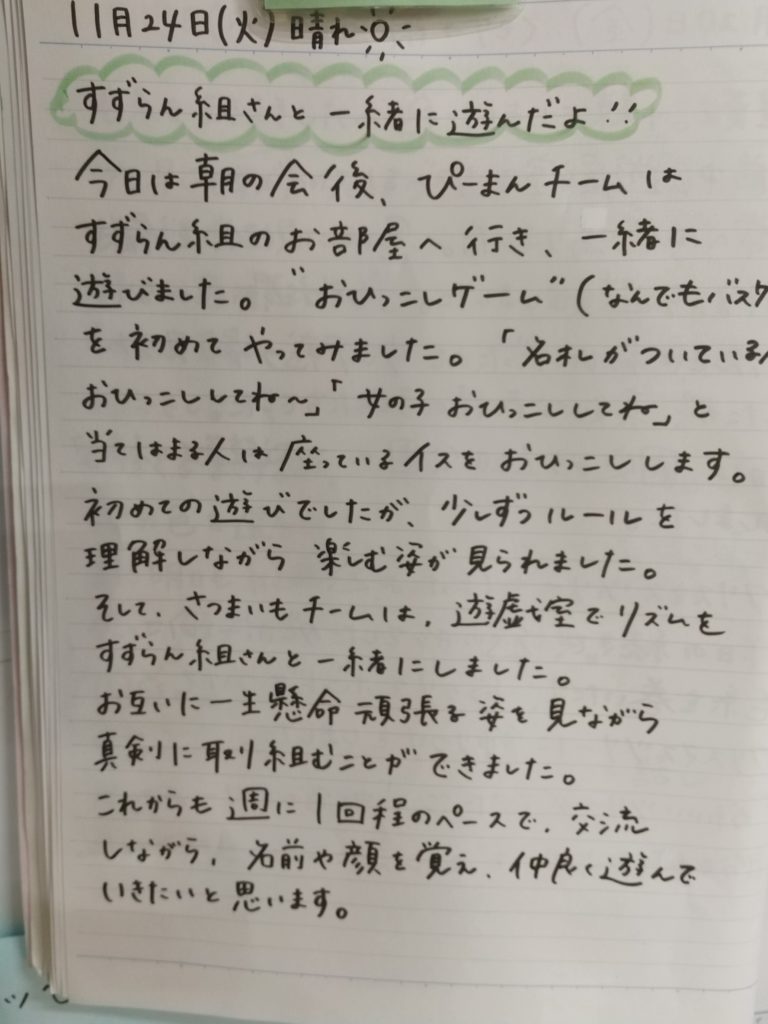 11月24日(火)晴れ
すずらん組さんと 一緒に遊んだよ!!
今日は朝の会後、ぴーまんチームは
すずらん組のお部屋へ行き、一緒に
遊びました。"おひっこしゲーム"(なんでもバスケ
を初めてやってみました。「名札がついている人
おひっこししてね〜」「女の子おひっこししてね」と
当てはまる人は座っているイスをおひっこしします。
初めての遊びでしたが、少しずつルールを
理解しながら楽しむ姿が見られました。
そして、さつまいもチームは、遊戯室でリズムを
すずらん組さんと一緒にしました。
お互いに一生懸命頑張る姿を見ながら
真剣に取り組むことができました。
これからも週に1回程のペースで、交流
しながら、名前や顔を覚え、仲良く遊んで
いきたいと思います。